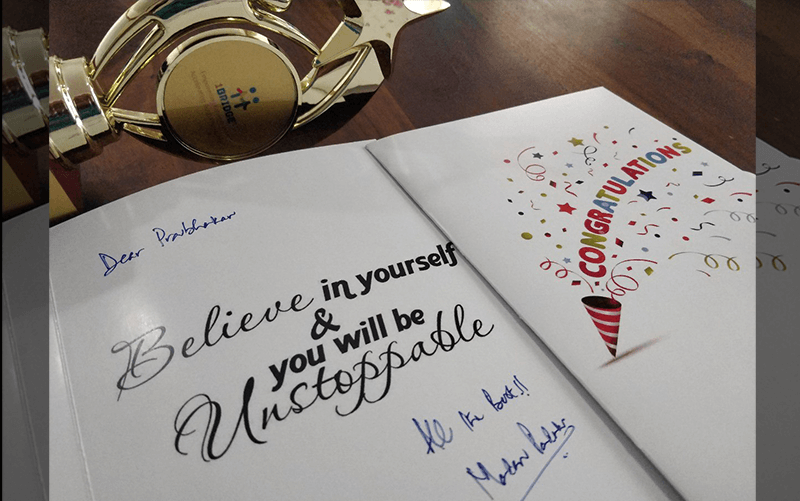 1BRIDGE
Dear Prabhakar
Believe in yourself
&
you will be
Unstoppable
All the Best!!
CONGRATULATIONS